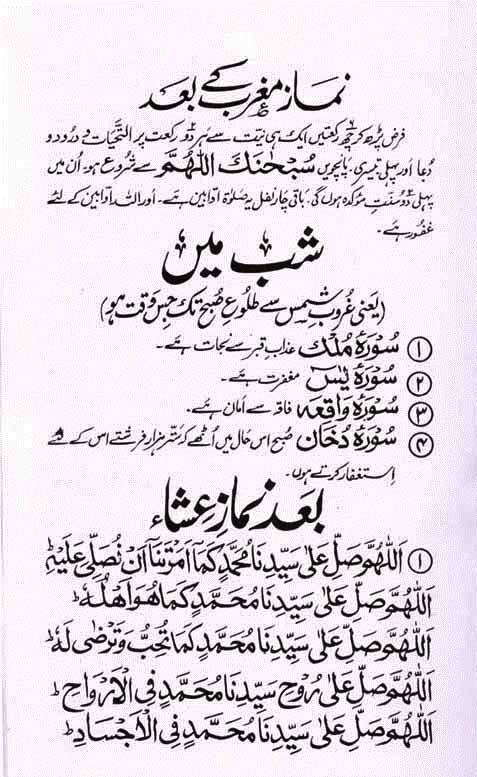 نمازِ مغرب کے بعد
فرض پڑھ کر چھ رکعتیں ایک ہی نیت سے ہر دو رکعت پر التحیات و درود و
دُعا اور پہلی تیسری، پانچویں سُبْحٰنَكَ اللّٰهُمَّ سے شروع ہو، اُن میں
پہلی دو سنت مؤکدہ ہوں گی، باقی چار نفل یہ صلوٰۃ اوابین ہے۔ اور اللہ اوابین کے لئے
غفور ہے۔
شب میں
(یعنی غروبِ شمس سے طلوعِ صبح تک جس وقت ہو)
① سُورۂ مُلک عذابِ قبر سے نجات ہے۔
② سُورۂ یٰسٓ مغفرت ہے۔
③ سُورۂ واقعہ فاقہ سے امان ہے۔
④ سُورۂ دُخان صبح اس حال میں اُٹھے کہ ستر ہزار فرشتے اس کے لئے
اِستغفار کرتے ہوں۔
بعد نمازِ عشاء
① اَللّٰهُمَّ صَلِّ عَلٰى سَيِّدِنَا مُحَمَّدٍ كَمَا اَمَرْتَنَا اَنْ نُّصَلِّيَ عَلَيْهِ ط
اَللّٰهُمَّ صَلِّ عَلٰى سَيِّدِنَا مُحَمَّدٍ كَمَا هُوَ اَهْلُهٗ ط
اَللّٰهُمَّ صَلِّ عَلٰى سَيِّدِنَا مُحَمَّدٍ كَمَا تُحِبُّ وَتَرْضٰى لَهٗ ط
اَللّٰهُمَّ صَلِّ عَلٰى رُوْحِ سَيِّدِنَا مُحَمَّدٍ فِي الْاَرْوَاحِ ط
اَللّٰهُمَّ صَلِّ عَلٰى سَيِّدِنَا مُحَمَّدٍ فِي الْاَجْسَادِ ط